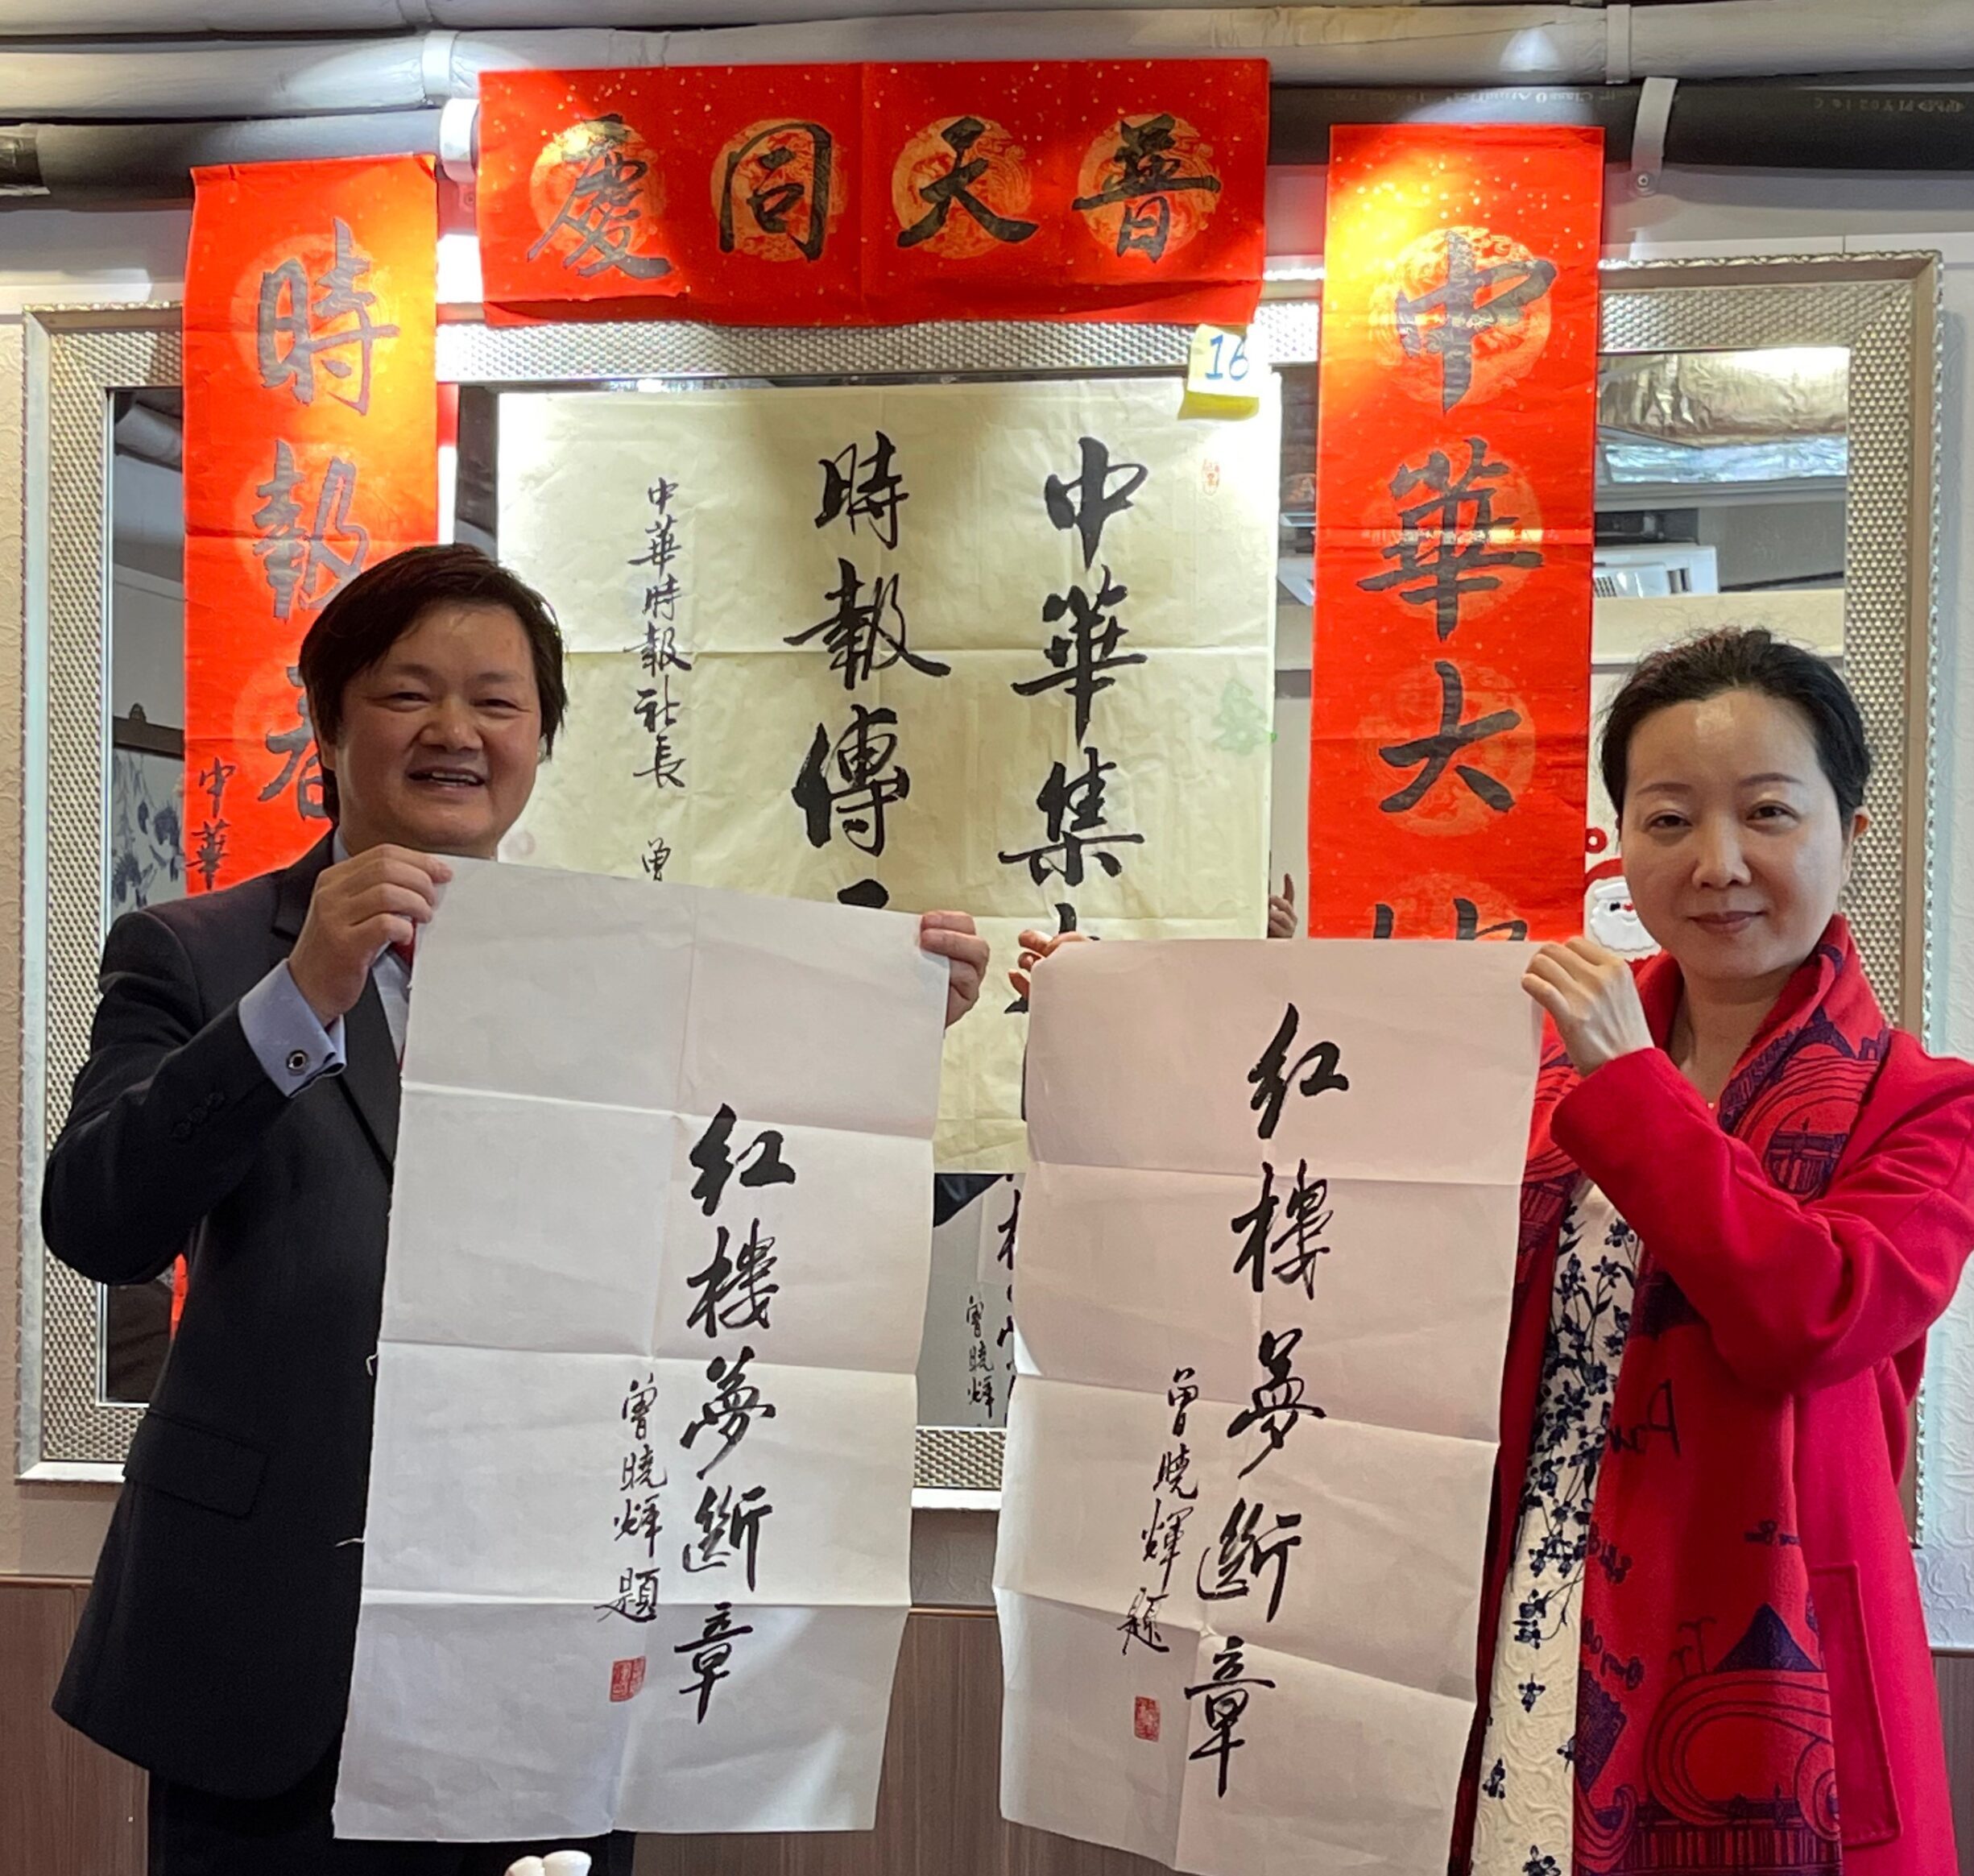 普天同慶
中華大地
時報春
中華
16
中華集
時報傳
中華時報社長 曾
紅樓夢斷章
曾曉輝題
紅樓夢斷章
曾曉輝題
曾曉輝